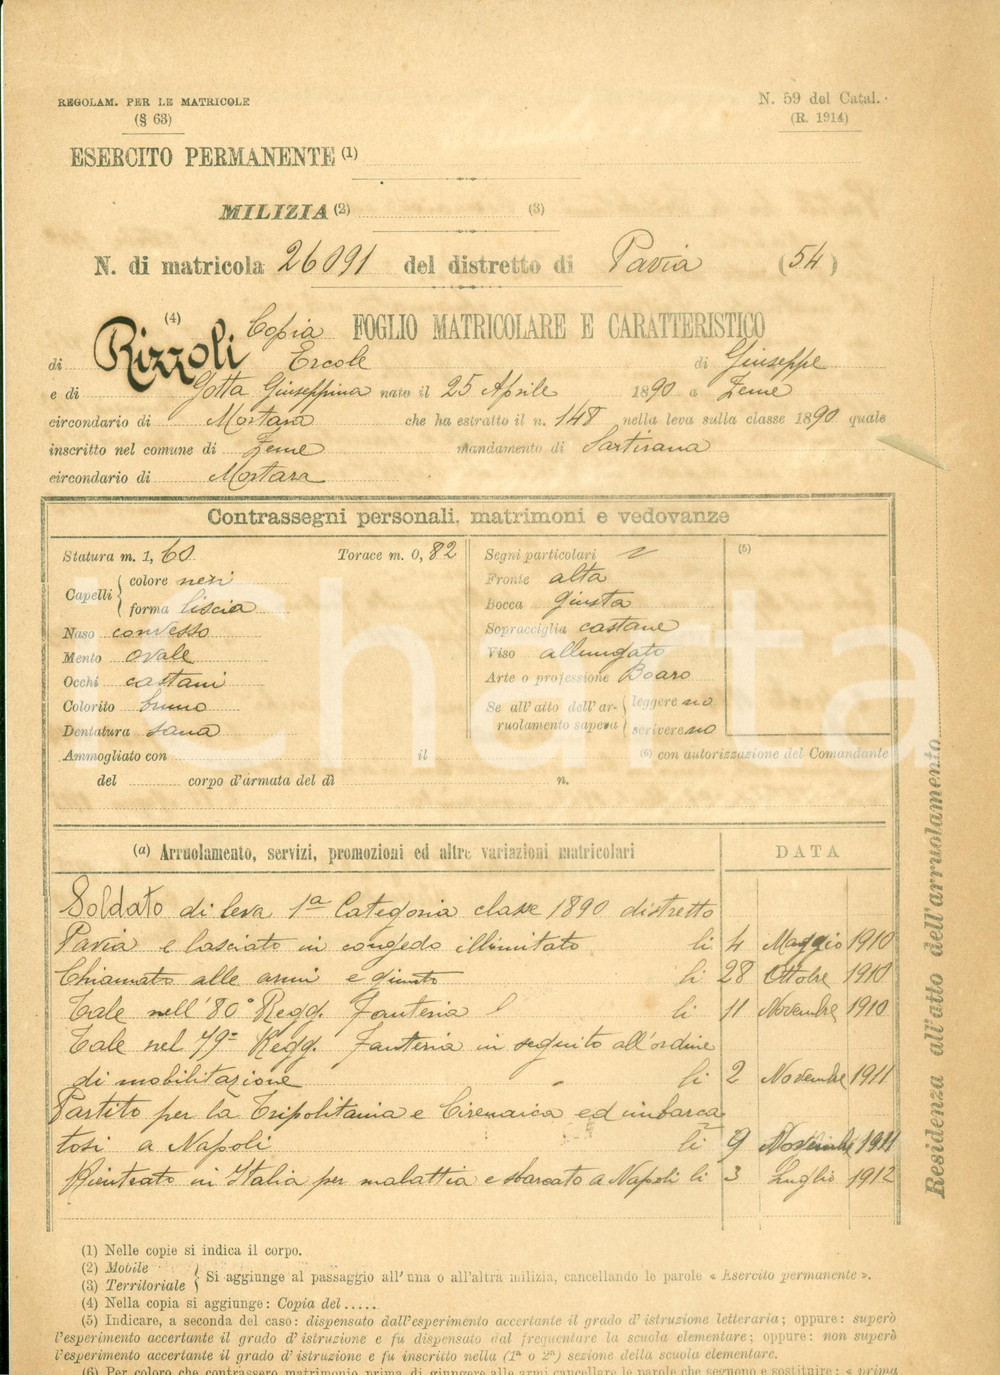 REGOLAM. PER LE MATRICOLE
(§ 63)
N. 59 del Catal.
(R. 1914)
ESERCITO PERMANENTE (1)
MILIZIA (2) (3)
N. di matricola 26091 del distretto di Pavia (54)
(4) Copia FOGLIO MATRICOLARE E CARATTERISTICO
di Rizzoli Ercole di Giuseppe
e di Gotta Giuseppina nato il 25 Aprile 1890 a Zeme
circondario di Mortara che ha estratto il n. 148 nella leva sulla classe 1890 quale
inscritto nel comune di Zeme mandamento di Sartirana
circondario di Mortara
Contrassegni personali, matrimoni e vedovanze
Statura m. 1, 60 Torace m. 0, 82
Capelli { colore neri
forma liscia
Naso convesso
Mento ovale
Occhi castani
Colorito bruno
Dentatura sana
Segni particolari
Fronte alta
Bocca giusta
Sopracciglia castane
Viso allungato
Arte o professione Boaro
Se all'atto dell'ar- { leggere no
ruolamento sapeva { scrivere no
(5)
Ammogliato con il (6) con autorizzazione del Comandante
del corpo d'armata del dì n.
(a) Arruolamento, servizi, promozioni ed altre variazioni matricolari DATA
Soldato di leva 1a Categoria classe 1890 distretto
Pavia e lasciato in congedo illimitato li 4 Maggio 1910
Chiamato alle armi e giunto li 28 Ottobre 1910
Tale nell'80° Regg. Fanteria li 11 Novembre 1910
Tale nel 79° Regg. Fanteria in seguito all'ordine
di mobilitazione li 2 Novembre 1911
Partito per la Tripolitania e Cirenaica ed imbarca
tosi a Napoli li 9 Novembre 1911
Rientrato in Italia per malattia e sbarcato a Napoli li 3 Luglio 1912
Residenza all'atto dell'arruolamento
(1) Nelle copie si indica il corpo.
(2) Mobile
(3) Territoriale } Si aggiunge al passaggio all'una o all'altra milizia, cancellando le parole « Esercito permanente ».
(4) Nella copia si aggiunge: Copia del.....
(5) Indicare, a seconda del caso: dispensato dall'esperimento accertante il grado d'istruzione letteraria; oppure: superò
l'esperimento accertante il grado d'istruzione e fu dispensato dal frequentare la scuola elementare; oppure: non superò
l'esperimento accertante il grado d'istruzione e fu inscritto nella (1a o 2a) sezione della scuola elementare.
(6) Per coloro che contrassero matrimonio prima di giungere alle armi cancellare le parole che seguono e sostituire: « prima
Charta